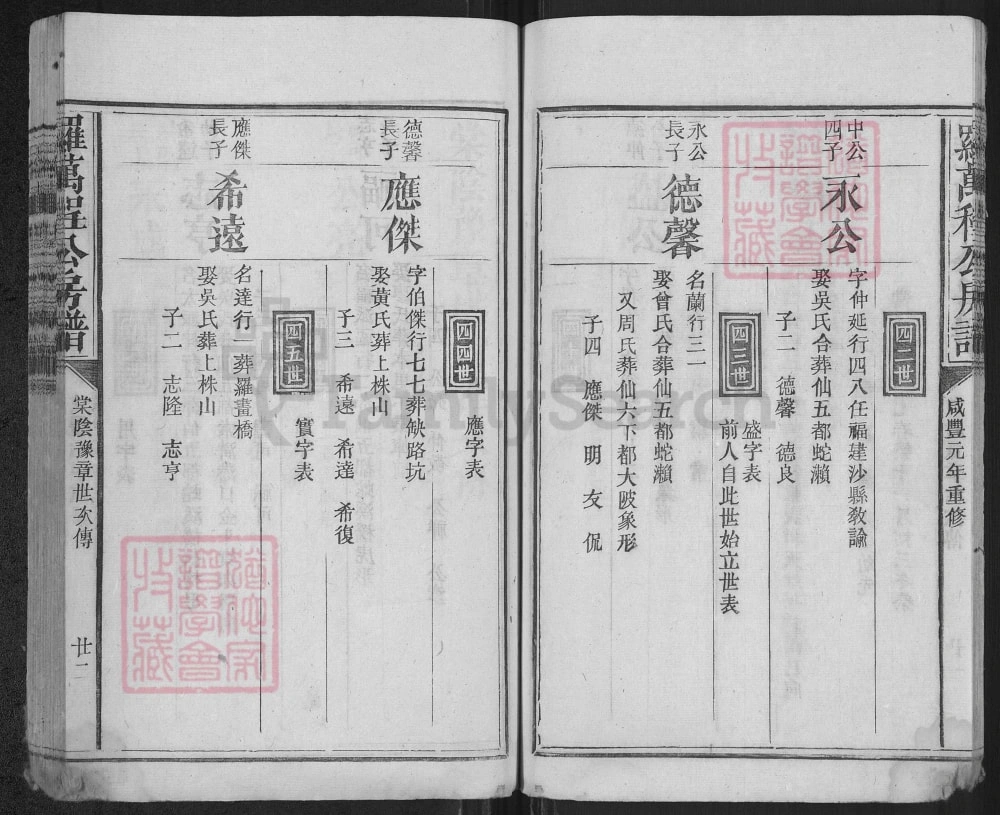 羅萬程公房譜
咸豐元年重修
四二世
中公四子
永公
字仲延行四八任福建沙縣教諭
娶吳氏合葬仙五都蛇瀨
子二 德馨 德良
四三世
盛字表
前人自此世始立世表
永公長子
德馨
名蘭行三二
娶曾氏合葬仙五都蛇瀨
又周氏葬仙六下都大陂象形
子四 應傑 明 友 侃
四四世
應字表
德馨長子
應傑
字伯傑行七七葬缺路坑
娶黃氏葬上株山
子三 希遠 希達 希復
四五世
實字表
應傑長子
希遠
名達行一葬羅畫橋
娶吳氏葬上株山
子二 志隆 志亨
羅萬程公房譜
棠陰豫章世次傳
廿二
譜學會
收藏
譜學會
收藏
FamilySearch